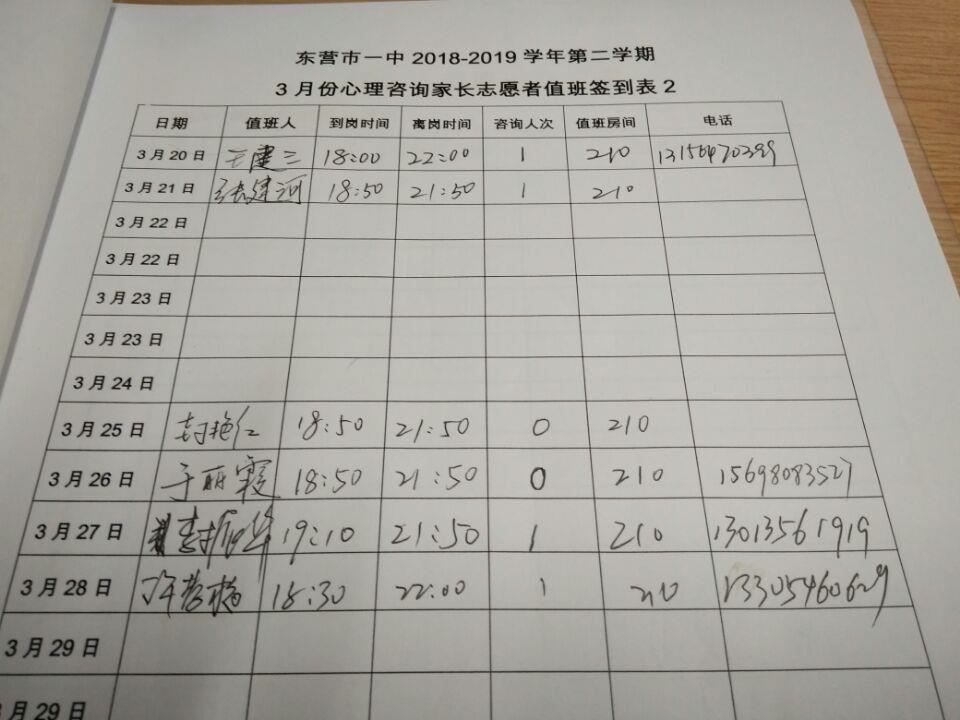 东营市一中 2018-2019 学年第二学期
3 月份心理咨询家长志愿者值班签到表 2
日期 值班人 到岗时间 离岗时间 咨询人次 值班房间 电话
3 月 20 日 王建三 18:00 22:00 1 210
3 月 21 日 张建河 18:50 21:50 1 210
3 月 22 日
3 月 22 日
3 月 23 日
3 月 23 日
3 月 24 日
3 月 25 日 18:50 21:50 0 210
3 月 26 日 于丽霞 18:50 21:50 0 210 15698083527
3 月 27 日 19:10 21:50 1 210 13013561919
3 月 28 日 18:30 22:00 1 210 13305460629
3 月 29 日
月 29 日